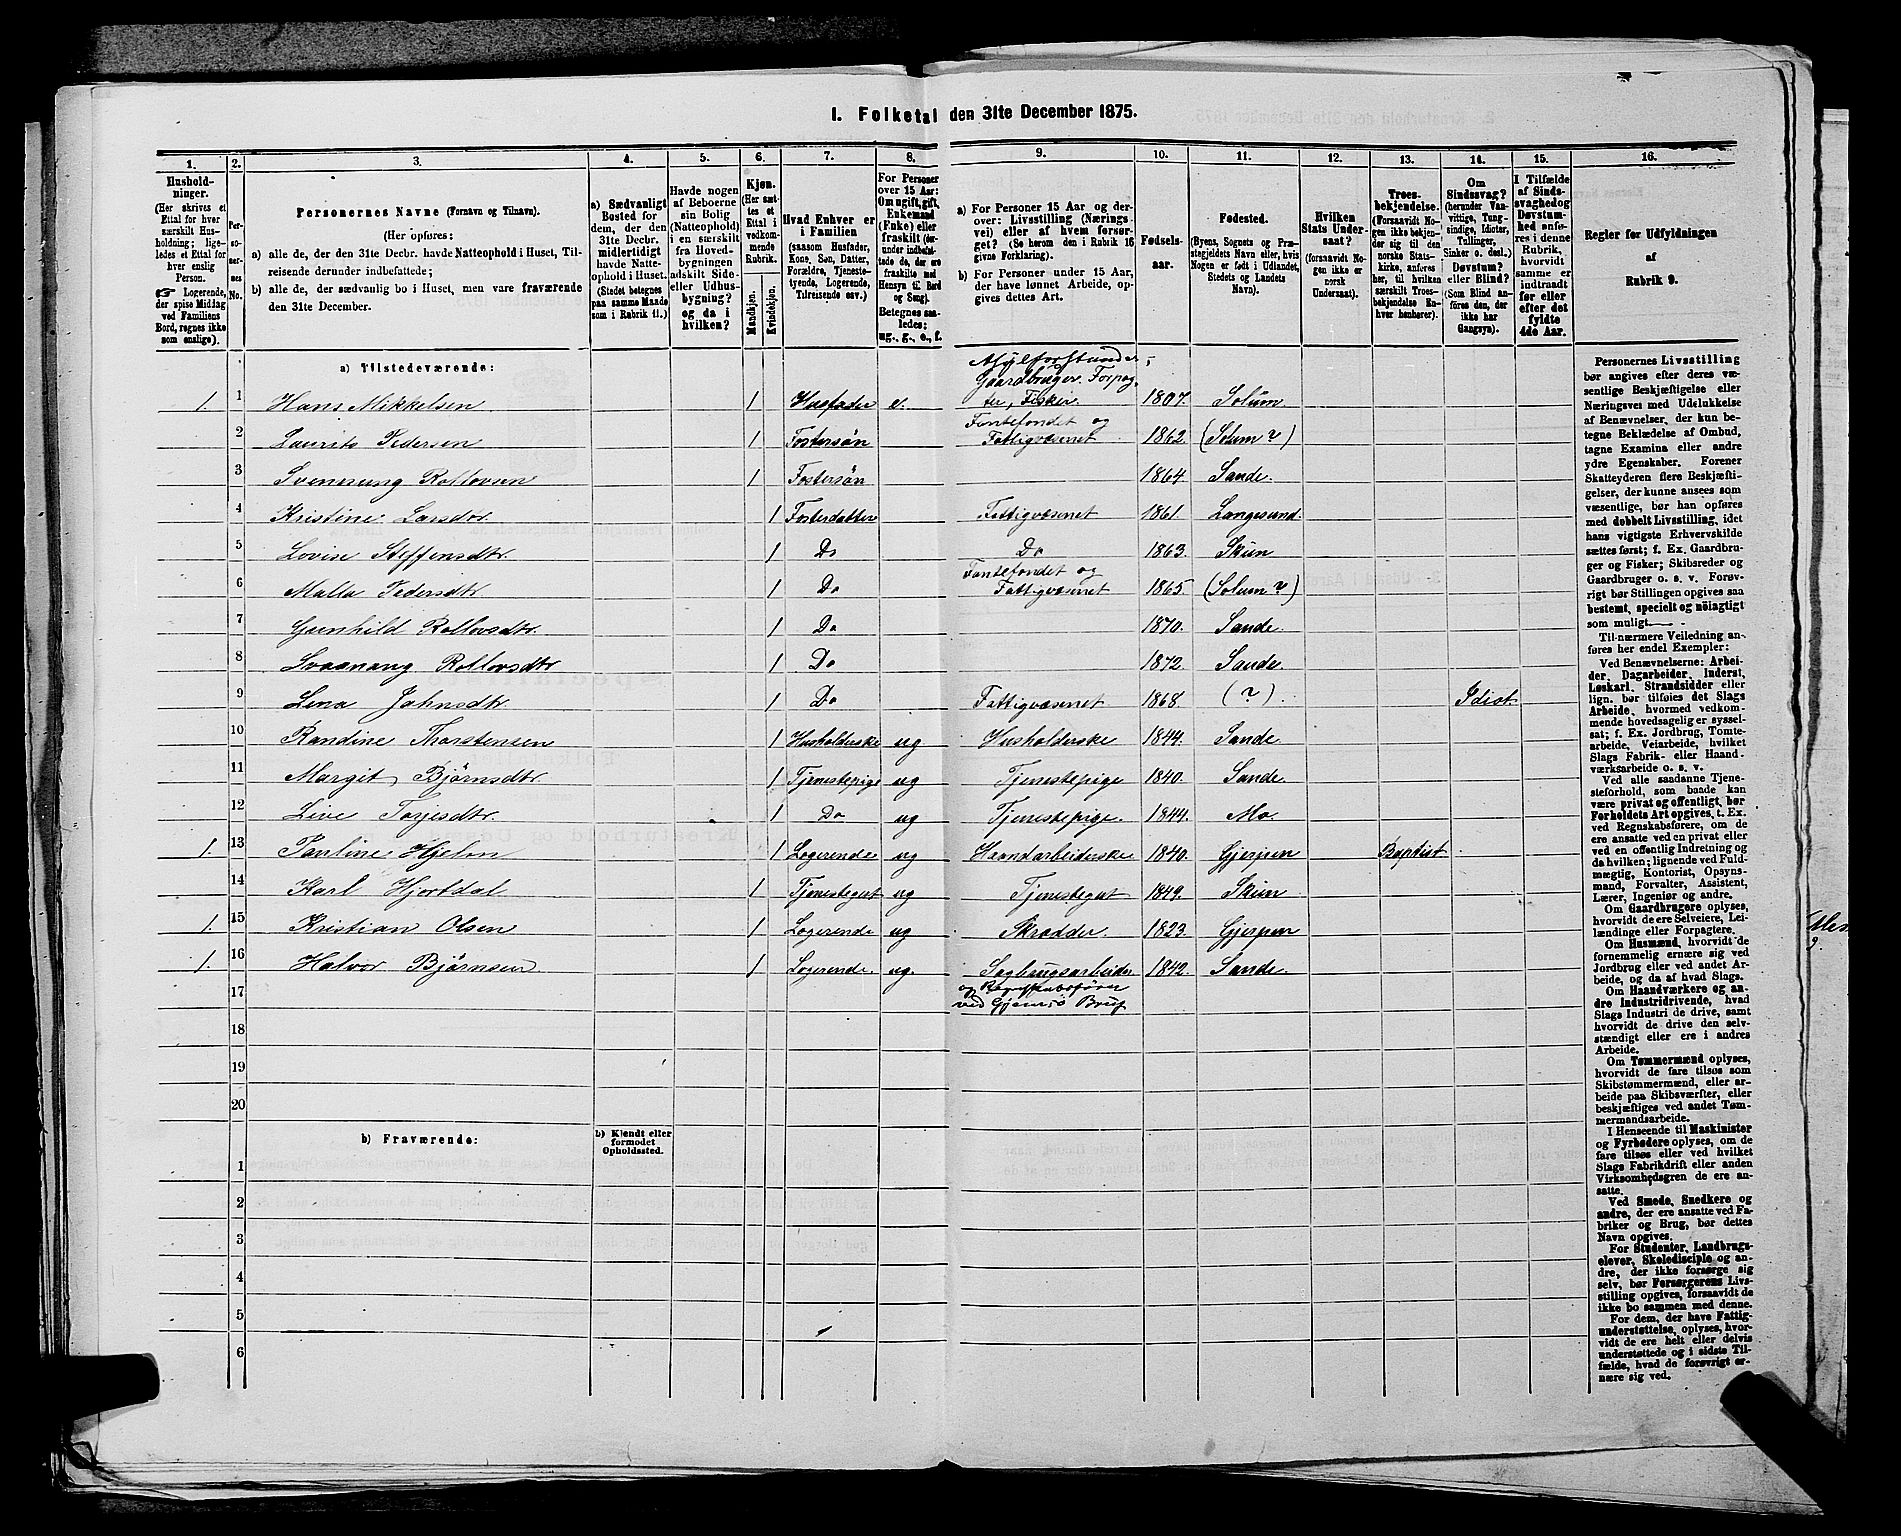 I. Folketal den 31te December 1875.
1. 2. 3. 4. 5. 6. 7. 8. 9. 10. 11. 12. 13. 14. 15. 16.
Husholdninger.
(Her skrives et
Ettal for hver
særskilt Husholdning;
ligeledes et Ettal for
hver enslig
Person.
☞ Logerende,
der spise Middag
ved Familiens
Bord, regnes ikke
som enslige).
Personernes No.
Personernes Navne (Fornavn og Tilnavn).
(Her opføres:
a) alle de, der den 31te Decbr. havde Natteophold i Huset, Tilreisende derunder indbefattede;
b) alle de, der sædvanlig bo i Huset, men vare fraværende
den 31te December.
a) Sædvanligt
Bosted for
dem, der den
31te Decbr.
midlertidigt
havde Natteophold
i Huset.
(Stedet betegnes
paa samme Maade
som i Rubrik 11.)
Havde nogen
af Beboerne
sin Bolig
(Natteophold)
i en særskilt
fra Hovedbygningen
adskilt Side-
eller Udhusbygning?
og da i
hvilken?
Kjøn.
(Her sættes et
Ettal i
vedkommende
Rubrik.
Mandkjøn.
Kvindekjøn.
Hvad Enhver er
i Familien
(saasom Husfader,
Kone, Søn, Datter,
Forældre, Tjenestetyende,
Logerende,
Tilreisende osv.)
For Personer
over 15 Aar:
Om ugift, gift,
Enkemand
(Enke) eller
fraskilt (derunder
indbefattede de, der ere
fraskilte med
Hensyn til Bord
og Seng).
Betegnes saaledes:
ug., g., e., f.
a) For Personer 15 Aar og derover:
Livsstilling (Næringsvei)
eller af hvem forsørget?
(Se herom den i Rubrik 16
givne Forklaring).
b) For Personer under 15 Aar,
der have lønnet Arbeide, opgives
dettes Art.
Fødselsaar.
Fødested.
(Byens, Sognets og Præstegjeldets
Navn eller, hvis
Nogen er født i Udlandet,
Stedets og Landets
Navn).
Hvilken
Stats Undersaat?
(forsaavidt Nogen
ikke er
norsk
Undersaat).
Troesbekjendelse.
(Forsaavidt Nogen
ikke bekjender
sig til den
norske Statskirke,
anføres
her, til hvilken
særskilt Troesbekjendelse
Enhver henhører).
Om
Sindssvag?
(herunder Vanvittige,
Tungsindige,
Idioter,
Tullinger,
Sinker o. desl.)
Døvstum?
eller Blind?
(Som Blind anføres
den, der
ikke har
Gangsyn).
I Tilfælde
af Sindssvaghed
og
Døvstumhed
anføres
i denne
Rubrik,
hvorvidt
samme er
indtraadt
før eller
efter det
fyldte
4de Aar.
Regler for Udfyldningen
af
Rubrik 9.
a) Tilstedeværende:
1. 1 Hans Mikkelsen 1 Husfader e. Asylforstander, Gaardbruger. Forpagter, Fisker. 1807. Solum
2 Laurits Pedersen 1 Fostersøn Fantefondet og Fattigvæsenet 1862. (Solum?)
3 Svennung Rollovsen 1 Fostersøn 1864. Sande.
4 Kristine Larsdtr. 1 Fosterdatter Fattigvæsenet 1861. Langesund.
5 Lovise Steffensdtr. 1 Do Do 1863. Skien
6 Malla Pedersdtr 1 Do Fantefondet og Fattigvæsenet 1865. (Solum?)
7 Gunhild Rollovsdtr. 1 Do 1870. Sande.
8 Svaanaug Rollovsdtr 1 Do 1872. Sande
9 Lina Jahnsdtr 1 Do Fattigvæsenet 1868. (?) Idiot
10 Randine Thorstensen 1 Husholderske ug Husholderske 1844. Sande
11 Margit Bjørnsdtr. 1 Tjenestepige ug Tjenestepige 1840. Sande
12 Live Torjesdtr. 1 Do ug Tjenestepige. 1844. Mo
1. 13 Pauline Hjelm 1 Logerende ug Haandarbeiderske 1840. Gjerpen Baptist
14 Karl Hjortdal 1 Tjenestegut ug Tjenestegut 1849. Skien
1. 15 Kristian Olsen 1 Logerende ug Skrædder. 1823. Gjerpen
1. 16 Halvor Bjørnsen 1 Logerende. ug. Sagbrugsarbeider 1842. Sande.
17 og Regnskabsfører ved Gjemsø Brug
18
19
20
b) Fraværende:
b) Kjendt eller
formodet
Opholdssted.
1
2
3
4
5
6
Personernes Livsstilling
bør angives efter deres væsentlige
Beskjæftigelse eller
Næringsvei med Udelukkelse
af Benævnelser, der kun betegne
Beklædelse af Ombud,
tagne Examina eller andre
ydre Egenskaber. Forener
Skatteyderen flere Beskjæftigelser,
der kunne ansees som
væsentlige, bør han opføres
med dobbelt Livsstilling, idet
hans vigtigste Erhvervskilde
sættes først; f. Ex. Gaardbruger
og Fisker; Skibsreder og
Gaardbruger o. s. v. Forøvrigt
bør Stillingen opgives saa
bestemt, specielt og nöiagtigt
som muligt.
Til nærmere Veiledning anføres
her endel Exempler:
Ved Benævnelserne: Arbeider,
Dagarbeider, Inderst,
Løskarl, Strandsidder eller
lign. bør tilføies det Slags
Arbeide, hvormed vedkommende
hovedsagelig er sysselsat;
f. Ex. Jordbrug, Tomtearbeide,
Veiarbeide, hvilket
Slags Fabrik- eller Haandværksarbeide
o. s. v.
Ved alle saadanne Tjenesteforhold,
som baade kan
være privat og offentligt, bør
Forholdets Art opgives, t. Ex.
ved Regnskabsførere, om de
ere ansatte ved en privat eller
ved en offentlig Indretning og
da hvilken; lignende ved Fuldmægtig,
Kontorist, Opsynsmand,
Forvalter, Assistent,
Lærer, Ingeniør og andre.
Om Gaardbrugere oplyses,
hvorvidt de ere Selveiere, Leilændinge
eller Forpagtere.
Om Husmænd, hvorvidt de
fornemmelig ernære sig ved
Jordbrug eller ved andet Arbeide,
og da af hvad Slags.
Om Haandværkere og andre
Industridrivende, hvad
Slags Industri de drive, samt
hvorvidt de drive den selvstændigt
eller ere i andres
Arbeide.
Om Tømmermænd oplyses,
hvorvidt de fare tilsøs som
Skibstømmermænd, eller arbeide
paa Skibsværfter, eller
beskjæftiges ved andet Tømmermandsarbeide.
I Henseende til Maskinister
og Fyrbødere oplyses, om de
fare tilsøs eller ved hvilket
Slags Fabrikdrift eller anden
Virksomhedsgren de ere ansatte.
Ved Smede, Snedkere og
andre, der ere ansatte ved Fabriker
og Brug, bør dettes
Navn opgives.
For Studenter, Landbrugselever,
Skoledisciple og andre,
der ikke forsørge sig
selv, bør Forsørgerens Livsstilling
opgives, forsaavidt de
ikke bo sammen med denne.
For dem, der have Fattigunderstøttelse,
oplyses, hvorvidt
de ere helt eller delvis
understøttede og i sidste Tilfælde,
hvad de forøvrigt ernære
sig ved.